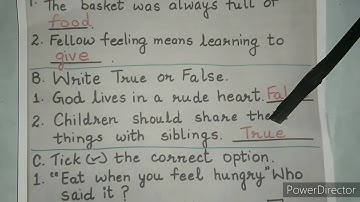 1. The basket was always full of
food
2. Fellow feeling means learning to
give.
B. Write True or False.
1. God lives in a rude heart.
2. Children should share
things with siblings. True
C. Tick (✓) the correct option.
1. "Eat when you feel hungry" Who
said it?
PowerDirector